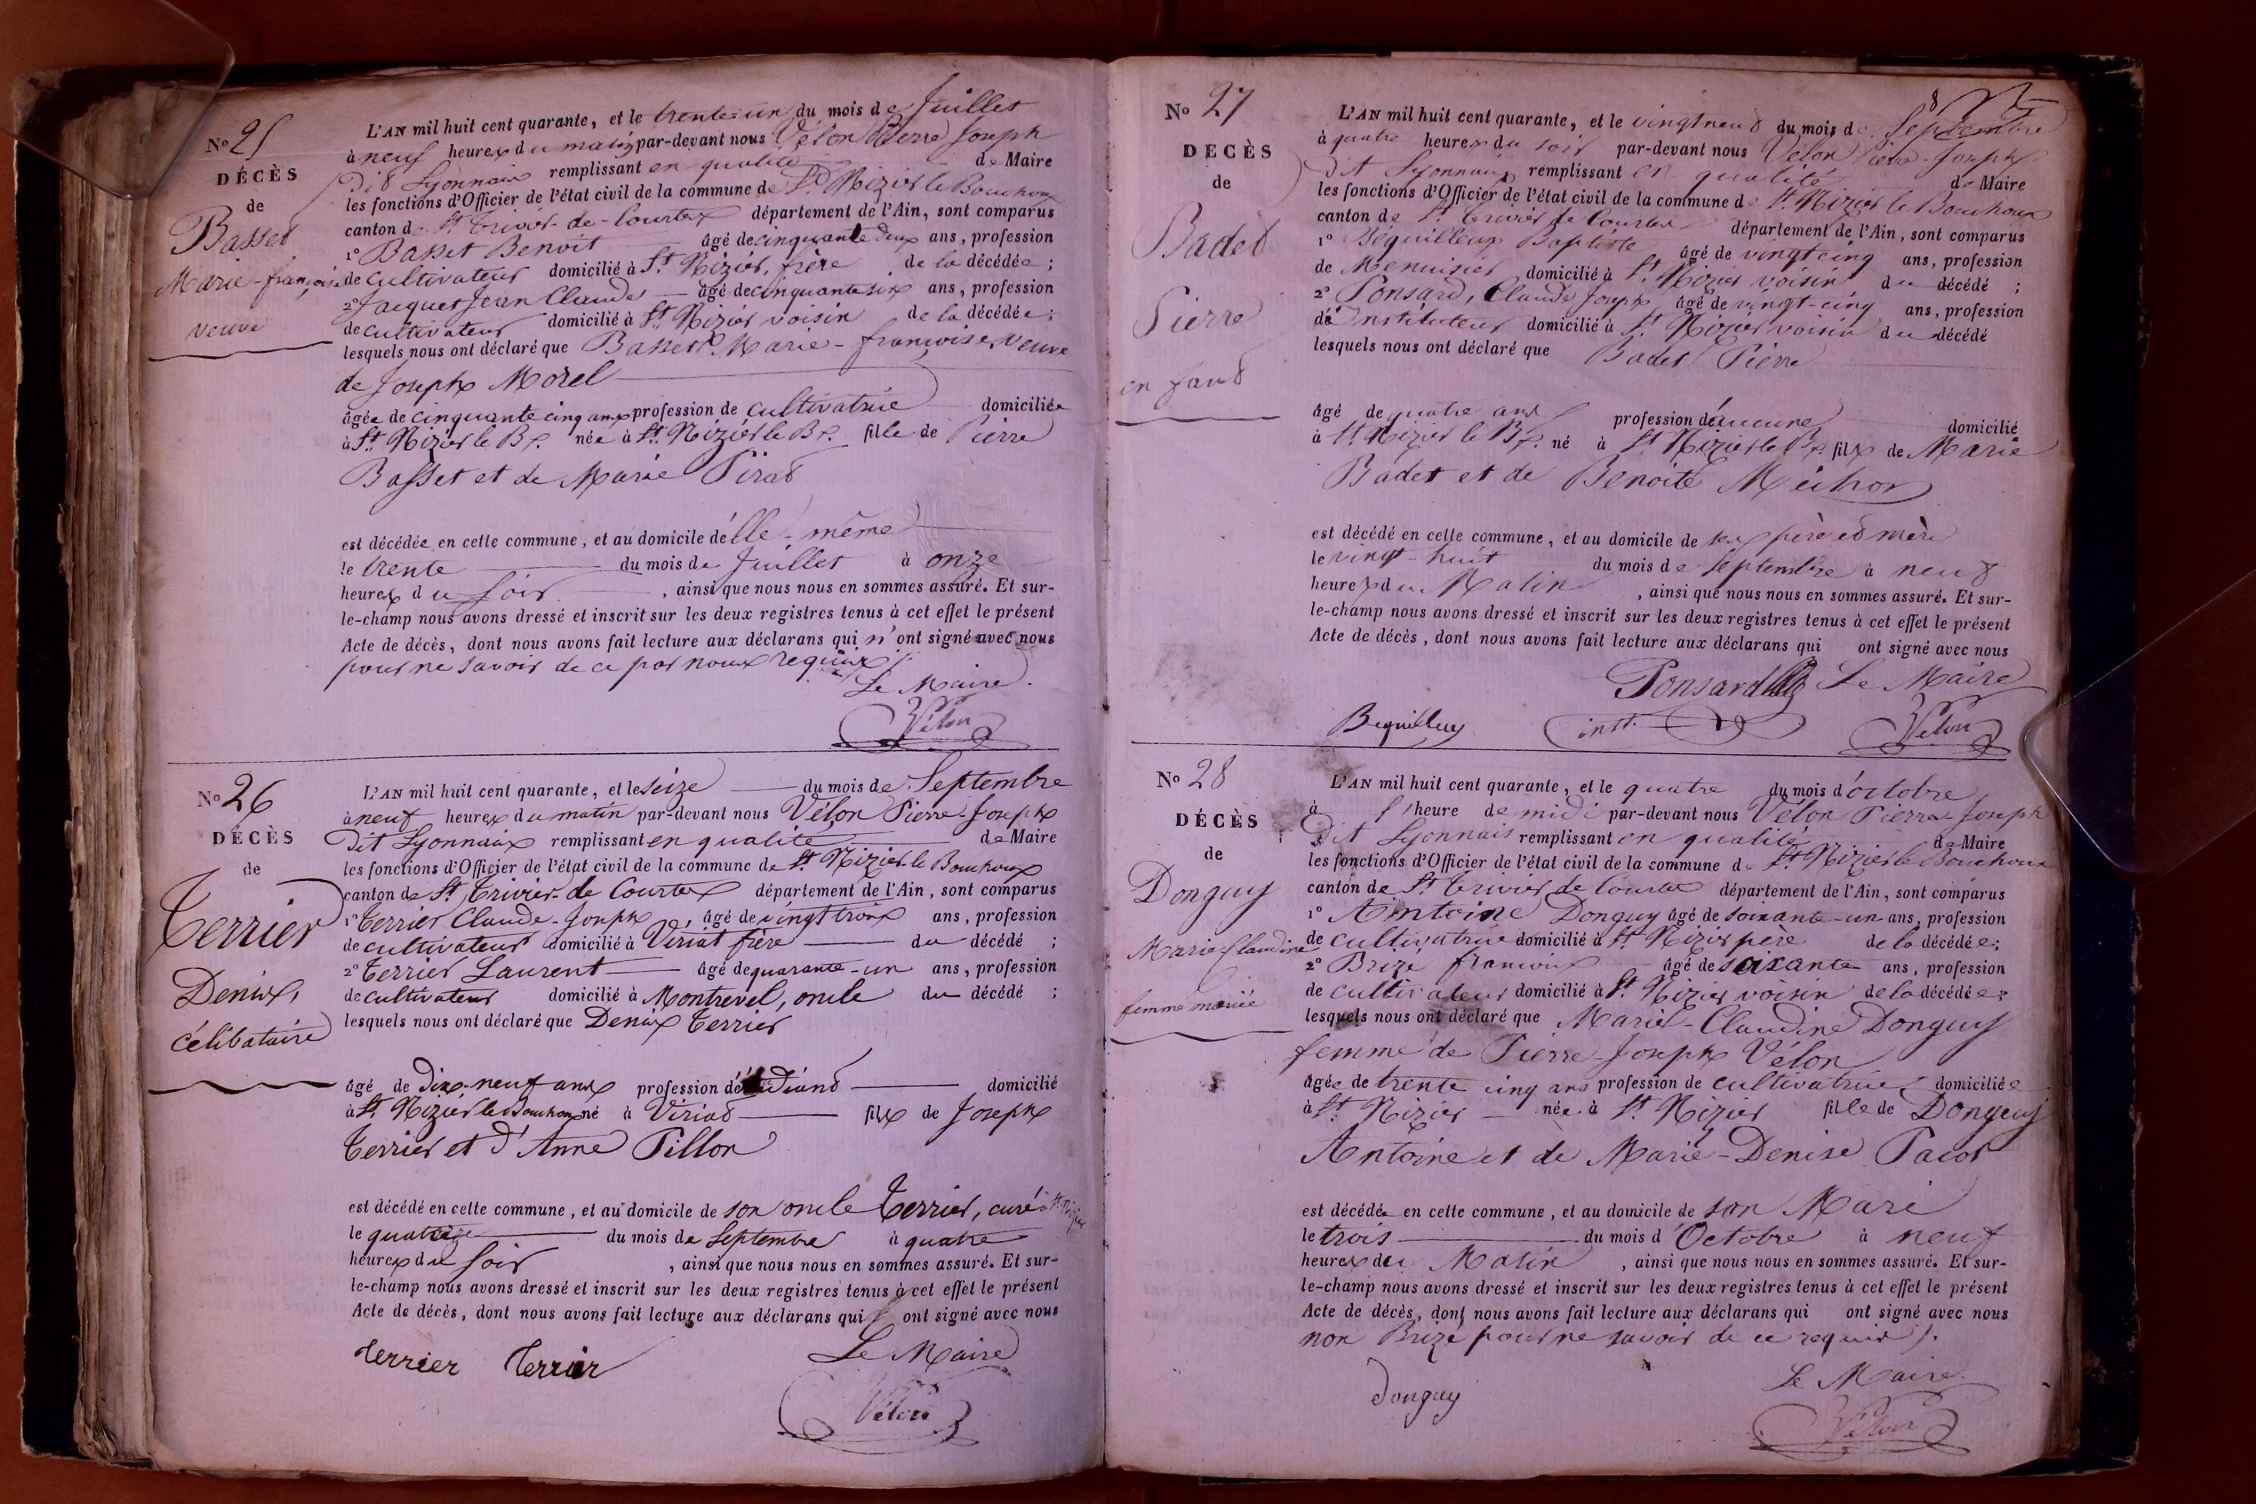 No 25
DÉCÈS
de
Basset
Marie-françoise
veuve
L'AN mil huit cent quarante, et le trente-un du mois de Juillet
à neuf heures du matin par-devant nous Vélon Pierre Joseph
dit Lyonnais remplissant en qualité de Maire
les fonctions d'Officier de l'état civil de la commune de St Nizier le Bouchoux
canton de St Trivier-de-Courtes département de l'Ain, sont comparus
1º Basset Benoit âgé de cinquante deux ans, profession
de cultivateur domicilié à St Nizier, frère de la décédée ;
2º Jacquet Jean Claude âgé de cinquante six ans, profession
de cultivateur domicilié à St Nizier voisin de la décédée ;
lesquels nous ont déclaré que Basset Marie-françoise, veuve
de Joseph Morel
âgée de cinquante cinq ans profession de cultivatrice domiciliée
à St Nizier le Bx. née à St Nizier le Bx. fille de Pierre
Basset et de Marie Pirat
est décédée en cette commune, et au domicile d'elle-même
le trente du mois de Juillet à onze
heures du soir, ainsi que nous nous en sommes assuré. Et sur-
le-champ nous avons dressé et inscrit sur les deux registres tenus à cet effet le présent
Acte de décès, dont nous avons fait lecture aux déclarans qui n'ont signé avec nous
pour ne savoir de ce par nous requis /.
Le Maire
Vélon
No 26
DÉCÈS
de
Terrier
Denis,
célibataire
L'AN mil huit cent quarante, et le seize du mois de Septembre
à neuf heures du matin par-devant nous Vélon Pierre-Joseph
dit Lyonnais remplissant en qualité de Maire
les fonctions d'Officier de l'état civil de la commune de St Nizier le Bouchoux
canton de St Trivier-de Courtes département de l'Ain, sont comparus
1º Terrier Claude-Joseph, âgé de vingt trois ans, profession
de cultivateur domicilié à Viriat frère du décédé ;
2º Terrier Laurent âgé de quarante-un ans, profession
de cultivateur domicilié à Montrevel, oncle du décédé ;
lesquels nous ont déclaré que Denis Terrier
âgé de dix-neuf ans profession d'étudiant domicilié
à St Nizier le Bouchoux né à Viriat fils de Joseph
Terrier et d'Anne Pillon
est décédé en cette commune, et au domicile de son oncle Terrier, curé à St Nizier
le quatorze du mois de Septembre à quatre
heures du soir, ainsi que nous nous en sommes assuré. Et sur-
le-champ nous avons dressé et inscrit sur les deux registres tenus à cet effet le présent
Acte de décès, dont nous avons fait lecture aux déclarans qui ont signé avec nous
Terrier Terrier Le Maire
Vélon
No 27
DÉCÈS
de
Badet
Pierre
enfant
L'AN mil huit cent quarante, et le vingt neuf du mois de Septembre
à quatre heures du soir par-devant nous Vélon Pierre-Joseph
dit Lyonnais remplissant en qualité de Maire
les fonctions d'Officier de l'état civil de la commune de St Nizier le Bouchoux
canton de St Trivier de Courtes département de l'Ain, sont comparus
1º Béquilleux Baptiste âgé de vingt cinq ans, profession
de Menuisier domicilié à St Nizier voisin du décédé ;
2º Ponsard, Claude Joseph, âgé de vingt-cinq ans, profession
d'Instituteur domicilié à St Nizier voisin du décédé
lesquels nous ont déclaré que Badet Pierre
âgé de quatre ans profession d'aucune domicilié
à St Nizier le Bx. né à St Nizier le Bx. fils de Marie
Badet et de Benoite
est décédé en cette commune, et au domicile de ses père et mère
le vingt-huit du mois de Septembre à neuf
heures du Matin, ainsi que nous nous en sommes assuré. Et sur-
le-champ nous avons dressé et inscrit sur les deux registres tenus à cet effet le présent
Acte de décès, dont nous avons fait lecture aux déclarans qui ont signé avec nous
Ponsard Le Maire
Bequilleux inst. Vélon
No 28
DÉCÈS
de
Donguy
Marie Claudine
femme mariée
L'AN mil huit cent quarante, et le quatre du mois d'octobre
à l'heure de midi par-devant nous Vélon Pierre Joseph
dit Lyonnais remplissant en qualité de Maire
les fonctions d'Officier de l'état civil de la commune de St Nizier le Bouchoux
canton de St Trivier de Courtes département de l'Ain, sont comparus
1º Antoine Donguy âgé de soixante-un ans, profession
de cultivatrice domicilié à St Nizier père de la décédée ;
2º Brizé françois âgé de soixante ans, profession
de cultivateur domicilié à St Nizier voisin de la décédée ;
lesquels nous ont déclaré que Marie-Claudine Donguy
femme de Pierre-Joseph Vélon
âgée de trente cinq ans profession de cultivatrice domiciliée
à St Nizier née à St Nizier fille de Donguy
Antoine et de Marie-Denise Pacot
est décédée en cette commune, et au domicile de son Mari
le trois du mois d'Octobre à neuf
heures du Matin, ainsi que nous nous en sommes assuré. Et sur-
le-champ nous avons dressé et inscrit sur les deux registres tenus à cet effet le présent
Acte de décès, dont nous avons fait lecture aux déclarans qui ont signé avec nous
non Brizé pour ne savoir de ce requis /.
Le Maire
Donguy
Vélon